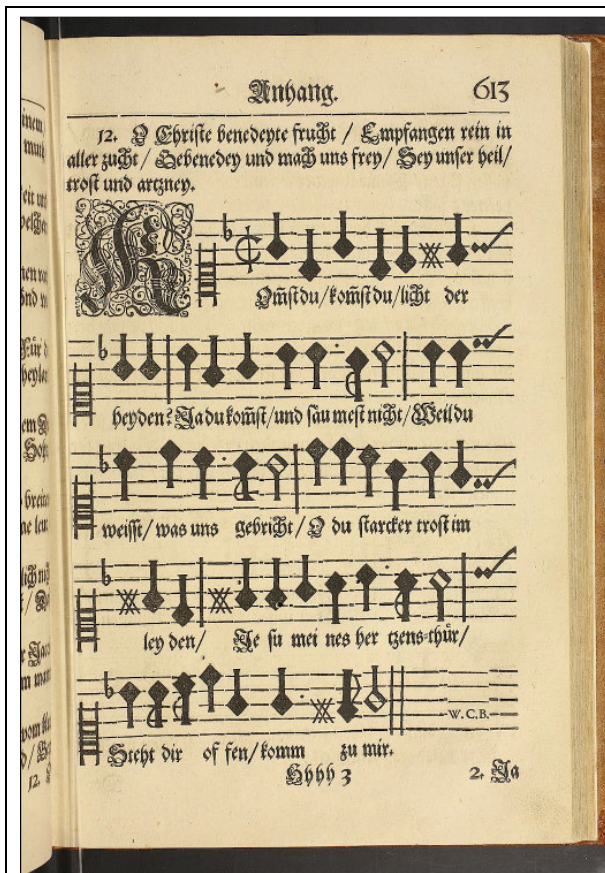 Anhang. 613
12. O Christe benedeyte frucht / Empfangen rein in
aller zucht / Gebenedey und mach uns frey / Sey unser heil /
trost und artzney.
KOm̃st du / kom̃st du / licht der
heyden? Ja du kom̃st / und säumest nicht / Weil du
weisst / was uns gebricht / O du starcker trost im
ley den / Je su mei nes her tzens-thür /
W. C. B.
Steht dir of fen / komm zu mir.
Hhhh 3 2. Ja